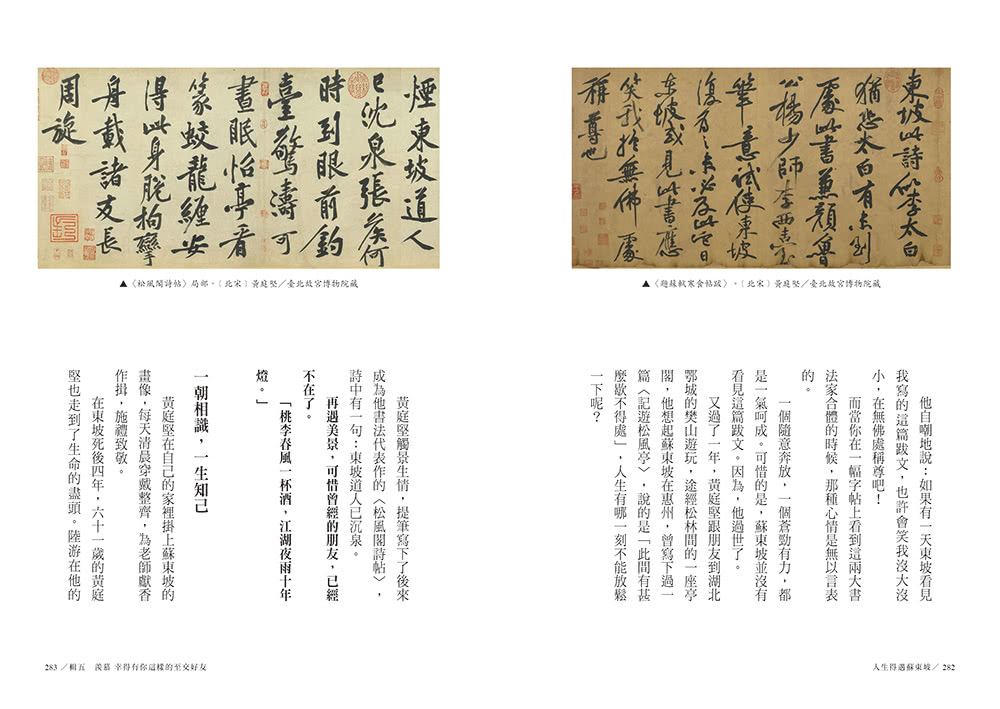 東坡此詩似李太白
猶恐太白有未到
處此書兼顏魯
公楊少師李西臺
筆意試使東坡
復為之未必及此它日
東坡或見此書應
笑我於無佛處
稱尊也
▲〈題蘇軾寒食帖跋〉。〔北宋〕黃庭堅／臺北故宮博物院藏
他自嘲地說：如果有一天東坡看見
我寫的這篇跋文，也許會笑我沒大沒
小，在無佛處稱尊吧！
而當你在一幅字帖上看到這兩大書
法家合體的時候，那種心情是無以言表
的。
一個隨意奔放，一個蒼勁有力，都
是一氣呵成。可惜的是，蘇東坡並沒有
看見這篇跋文。因為，他過世了。
又過了一年，黃庭堅跟朋友到湖北
鄂城的樊山遊玩，途經松林間的一座亭
閣，他想起蘇東坡在惠州，曾寫下過一
篇〈記遊松風亭〉，說的是「此間有甚
麼歇不得處」，人生有哪一刻不能放鬆
一下呢？
人生得遇蘇東坡／ 282
煙東坡道人
已沈泉張矦何
時到眼前釣
臺驚濤可
晝眠怡亭看
篆蛟龍纏安
得此身脫拘攣
舟載諸友長
周旋
▲〈松風閣詩帖〉局部。〔北宋〕黃庭堅／臺北故宮博物院藏
黃庭堅觸景生情，提筆寫下了後來
成為他書法代表作的〈松風閣詩帖〉，
詩中有一句：東坡道人已沉泉。
再遇美景，可惜曾經的朋友，已經
不在了。
「桃李春風一杯酒，江湖夜雨十年
燈。」
一朝相識，一生知己
黃庭堅在自己的家裡掛上蘇東坡的
畫像，每天清晨穿戴整齊，為老師獻香
作揖，施禮致敬。
在東坡死後四年，六十一歲的黃庭
堅也走到了生命的盡頭。陸游在他的
283 ／輯五　羨慕 幸得有你這樣的至交好友